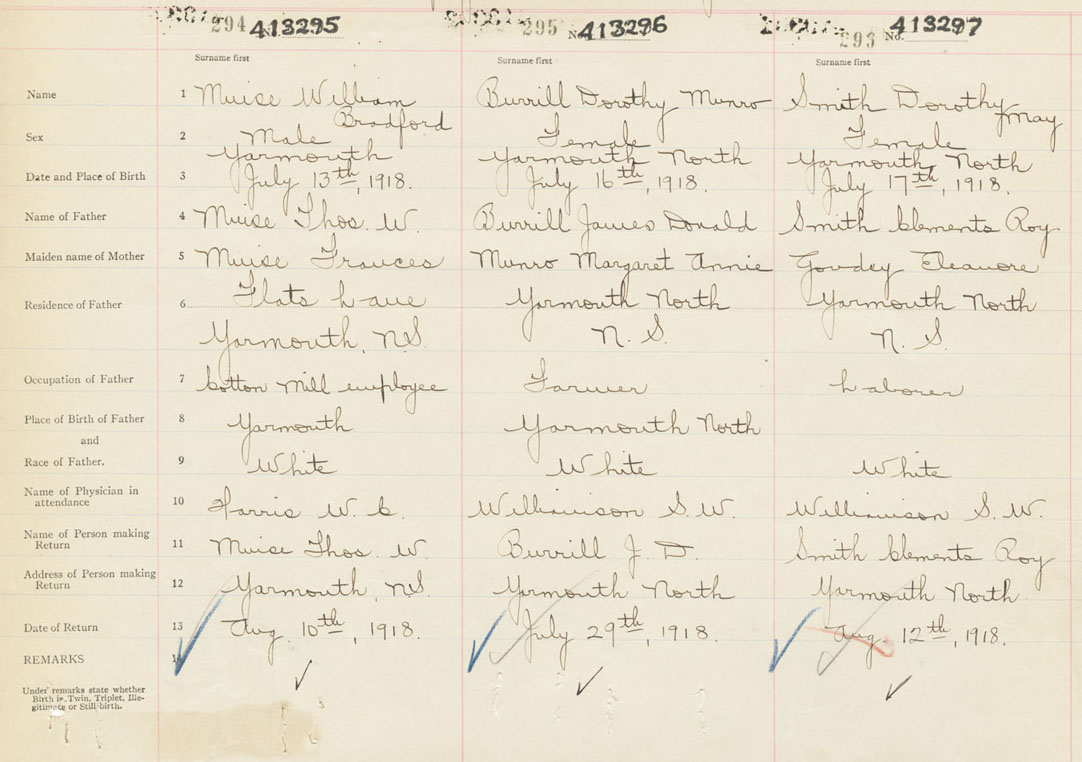 294 No. 413295 295 No. 413296 293 No. 413297
Surname first Surname first Surname first
Name 1 Muise William Bradford Burrill Dorothy Munro Smith Dorothy May
Sex 2 Male Female Female
Yarmouth Yarmouth North Yarmouth North
Date and Place of Birth 3 July 13th, 1918. July 16th, 1918. July 17th, 1918.
Name of Father 4 Muise Thos. W. Burrill James Donald Smith Clements Roy
Maiden name of Mother 5 Muise Frances Munro Margaret Annie Goudey Eleanore
Residence of Father 6 Flats Lane Yarmouth North Yarmouth North
Yarmouth, N.S. N. S. N. S.
Occupation of Father 7 Cotton Mill employee Farmer Laborer
Place of Birth of Father 8 Yarmouth Yarmouth North
and
Race of Father. 9 White White White
Name of Physician in
attendance 10 Harris W. C. Williamson S. W. Williamson S. W.
Name of Person making
Return 11 Muise Thos. W. Burrill J. D. Smith Clements Roy
Address of Person making
Return 12 Yarmouth, N.S. Yarmouth North Yarmouth North
Date of Return 13 Aug. 10th, 1918. July 29th, 1918. Aug. 12th, 1918.
REMARKS 14
Under remarks state whether
Birth is Twin, Triplet, Ille-
gitimate or Still-birth.